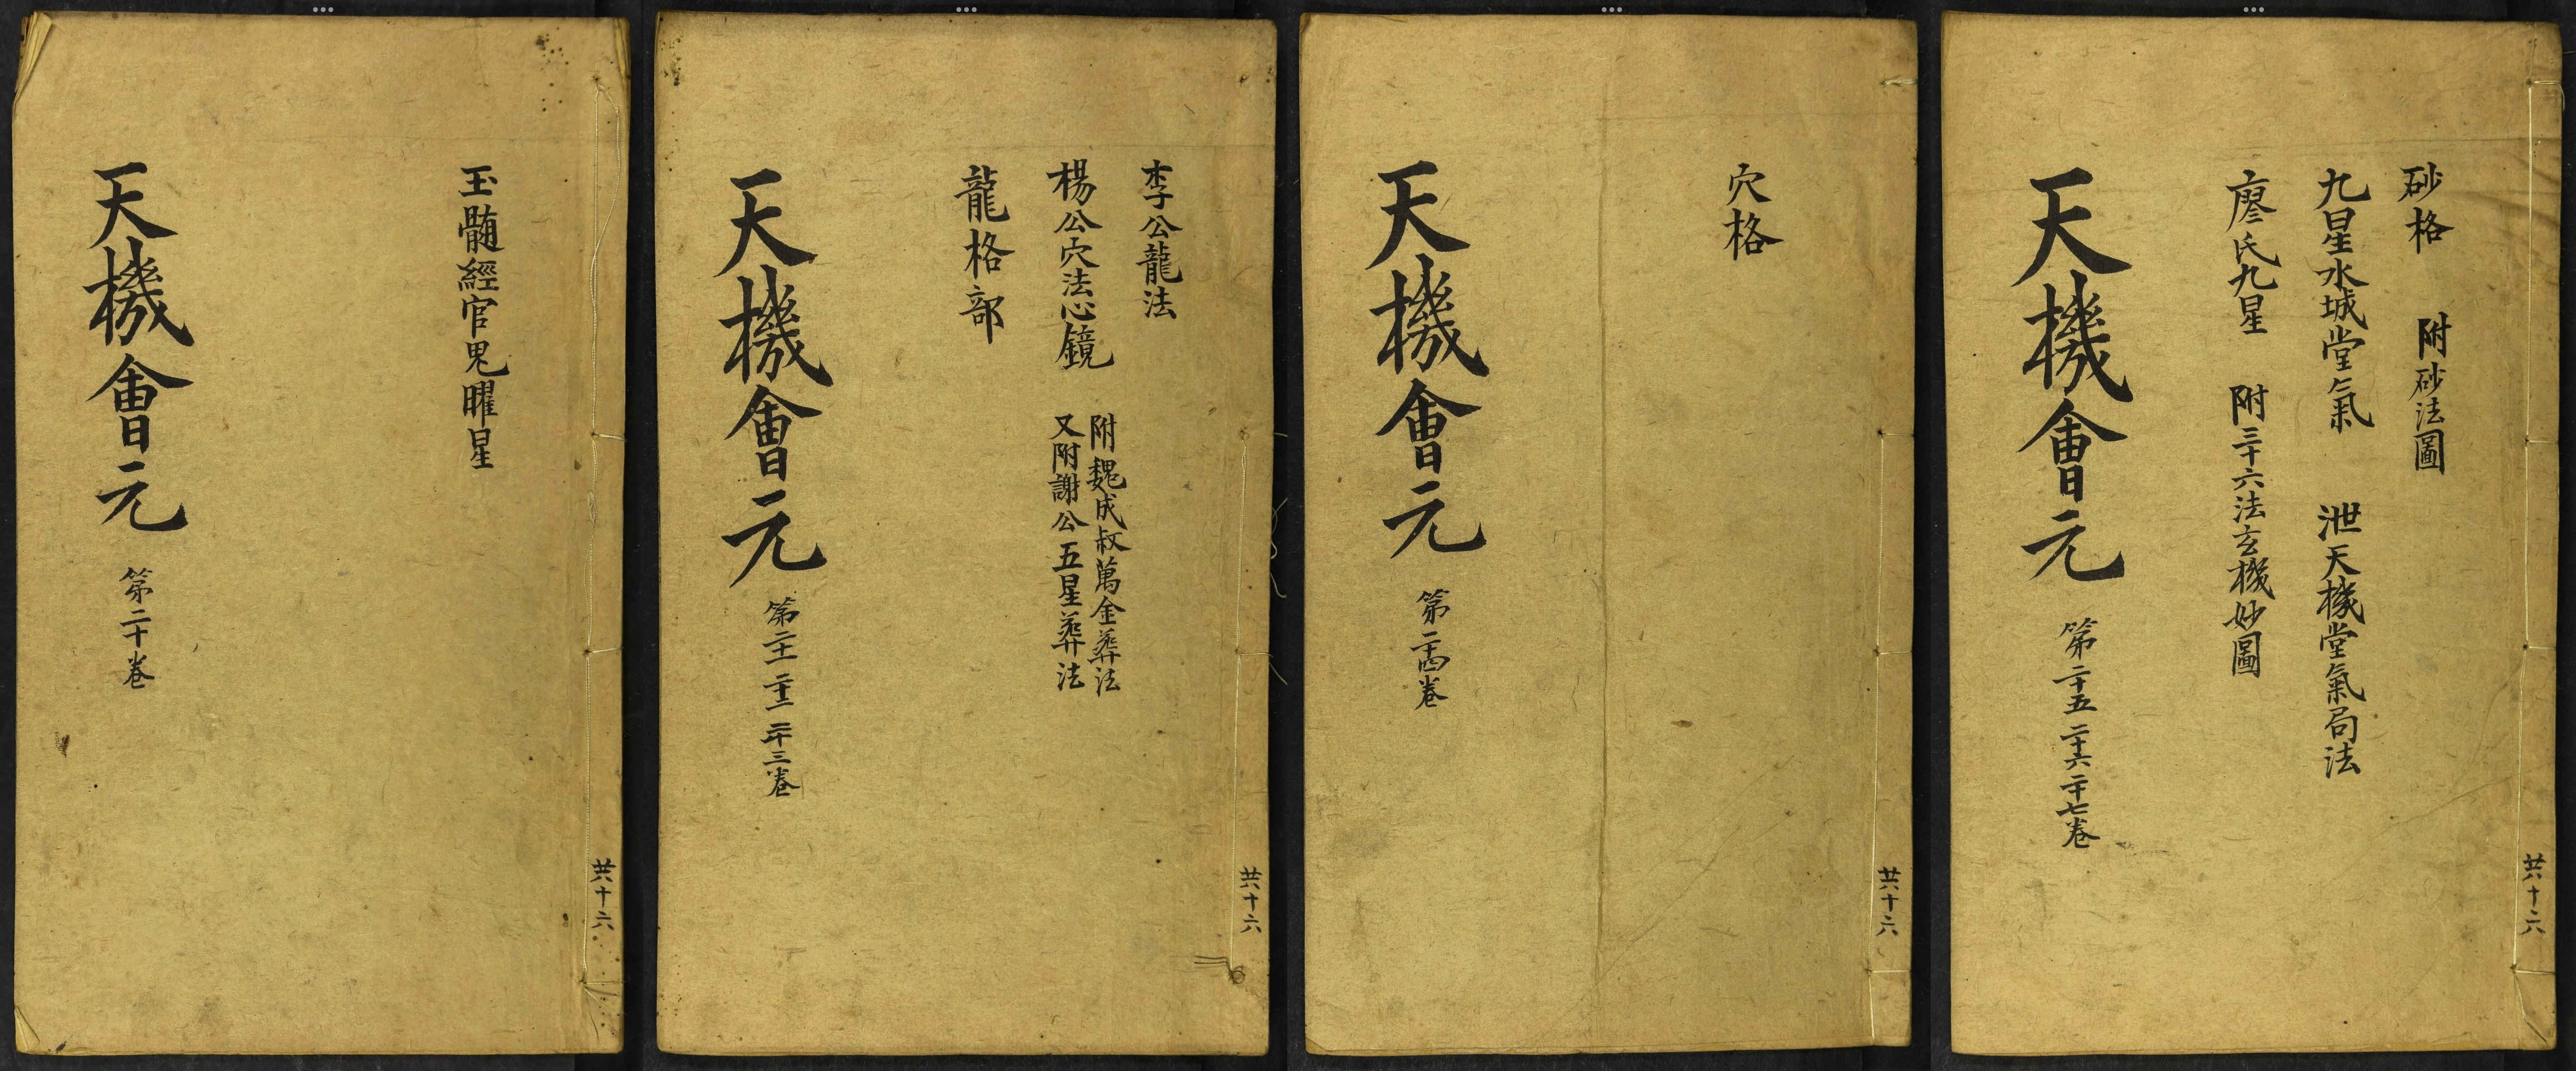 玉髄經官鬼曜星
天機會元 第二十卷
共十六
李公龍法
楊公穴法心鏡
附魏成叔萬金葬法
又附謝公五星葬法
龍格部
天機會元 第二十一 二十二 二十三卷
共十六
穴格
天機會元 第二十四卷
共十六
砂格 附砂法圖
九星水城堂氣 泄天機堂氣局法
廖氏九星 附三十六法玄機妙圖
天機會元 第二十五 二十六 二十七卷
共十六